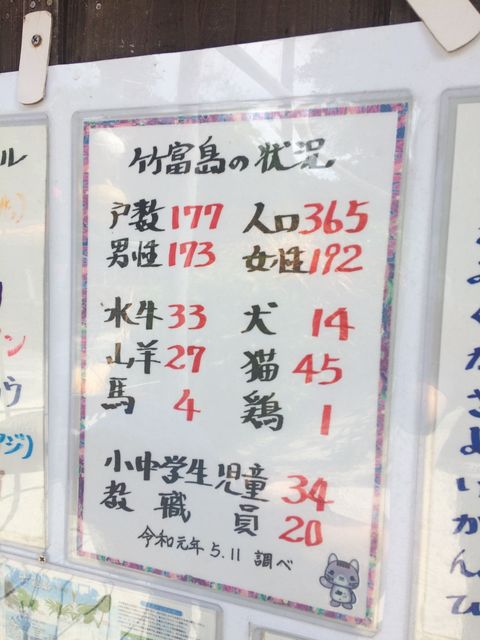 竹富島の状況
戸数 177 人口 365
男性 173 女性 192
水牛 33 犬 14
山羊 27 猫 45
馬 4 鶏 1
小中学生児童 34
教職員 20
令和元年 5.11 調べ